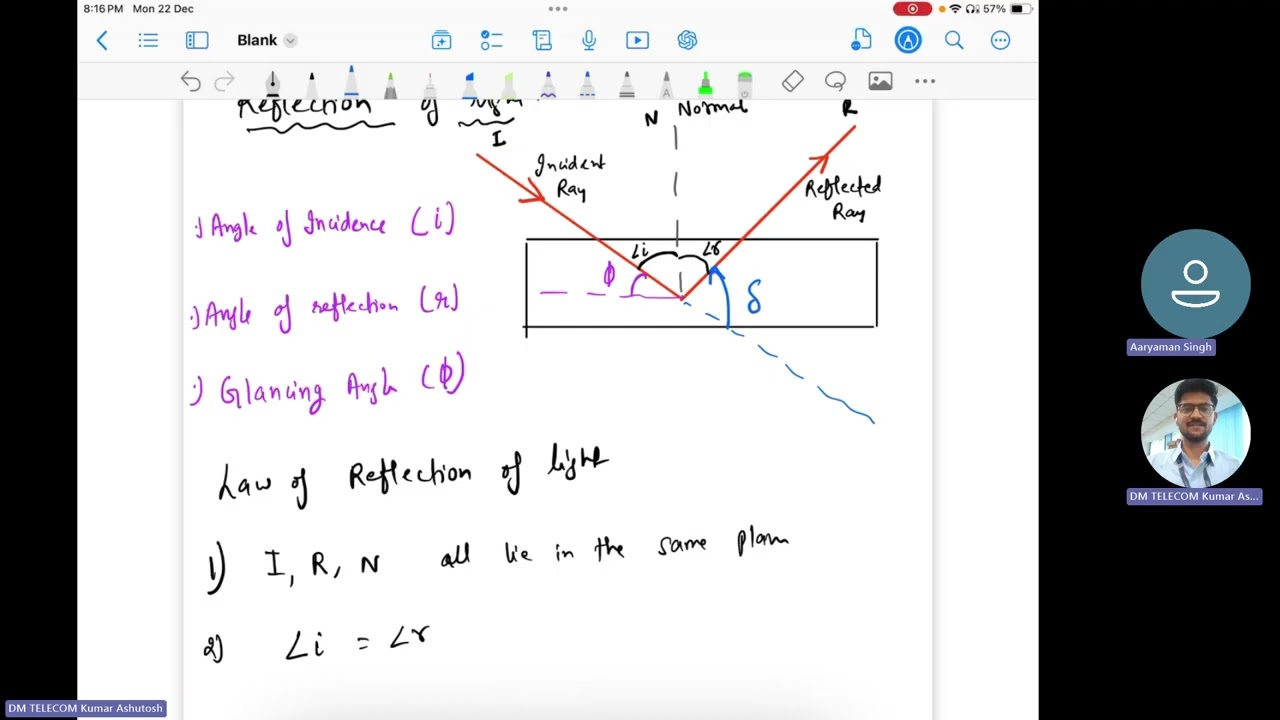 8:16 PM Mon 22 Dec
57%
Blank
Reflection of light
N Normal
R
I
Incident
Ray
Reflected
Ray
Angle of Incidence (i)
∠i ∠r
ϕ
δ
Angle of reflection (r)
Glancing Angle (ϕ)
Law of Reflection of light
1) I, R, N all lie in the same plane
2) ∠i = ∠r
Aaryaman Singh
DM TELECOM Kumar As...
DM TELECOM Kumar Ashutosh